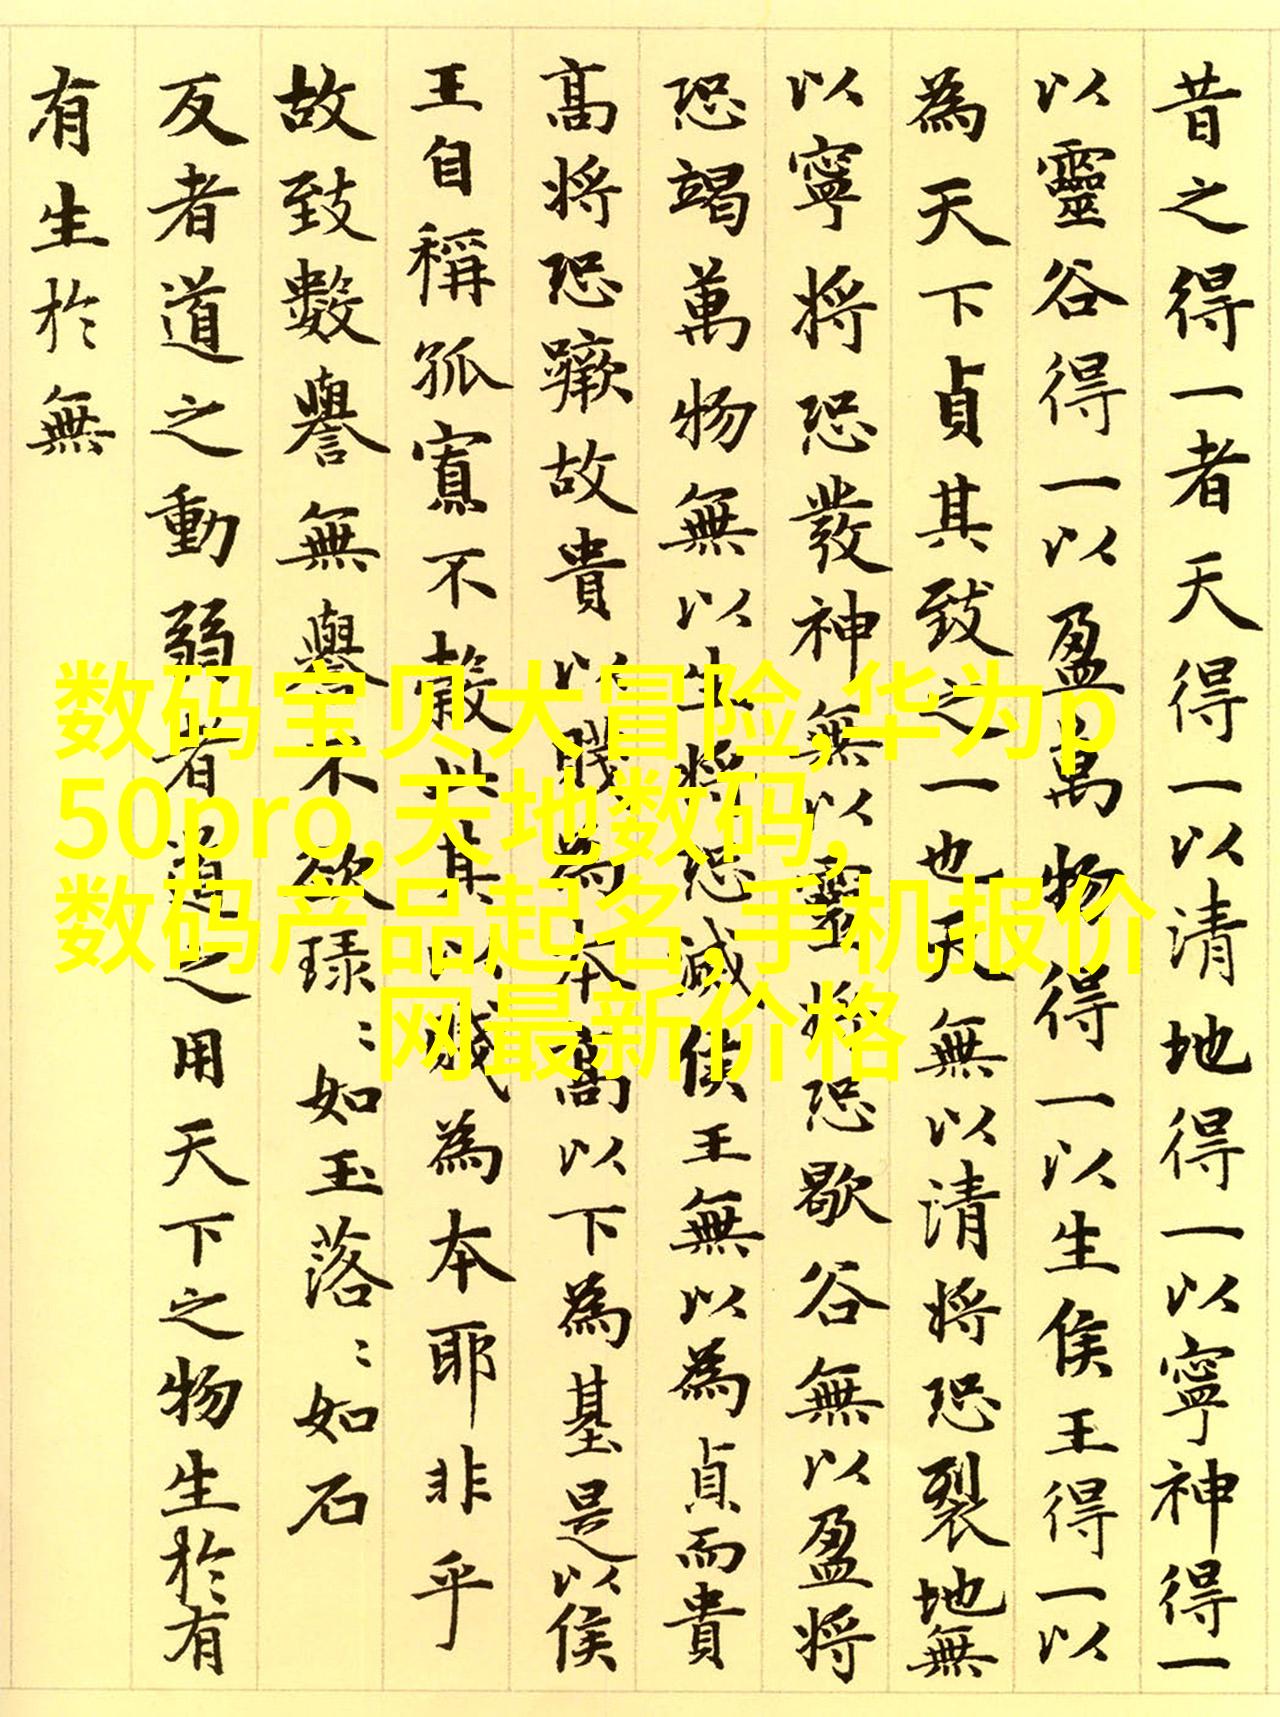 昔之得一者天得一以清地得一以寧神得一
以靈谷得一以盈萬物得一以生侯王得一以
為天下貞其致之一也天無以清将恐裂地無
以寧将恐發神無以靈将恐歇谷無以盈将
恐竭萬物無以生将恐滅侯王無以為貞而貴
髙将恐蹶故貴以賤為本髙以下為基是以侯
王自稱孤寡不穀此其以賤為本耶非乎
故致數譽無譽不欲琭：如玉落：如石
反者道之動弱者道之用天下之物生於有
有生於無
数码宝贝大冒险,华为p
50pro,天地数码,
数码产品起名,手机报价
网最新价格